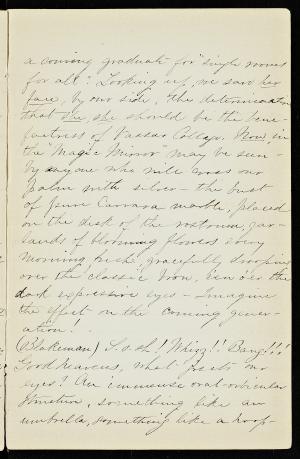 a coming graduate for "single rooms
for all". Looking up, we saw her
face, by our side, the determination
that she, she should be the bene-
factress of Vassar College. Now, in
the "Magic Mirror" may be seen -
by any one who will cross our
palm with silver - the bust
of pure Carrara marble, placed
on the desk of the rostrum, gar-
lands of blooming flowers every
morning fresh, gracefully drooping
over the classic brow, e'en o'er the
dark expressive eyes - Imagine
the effect on the coming gener-
ation!
(Blakeman) S-s-sh! Whizz!! Bang!!!
Good heavens, what greets our
eyes? An immense oval-orbicular
structure, something like an
umbrella, something like a hoop-